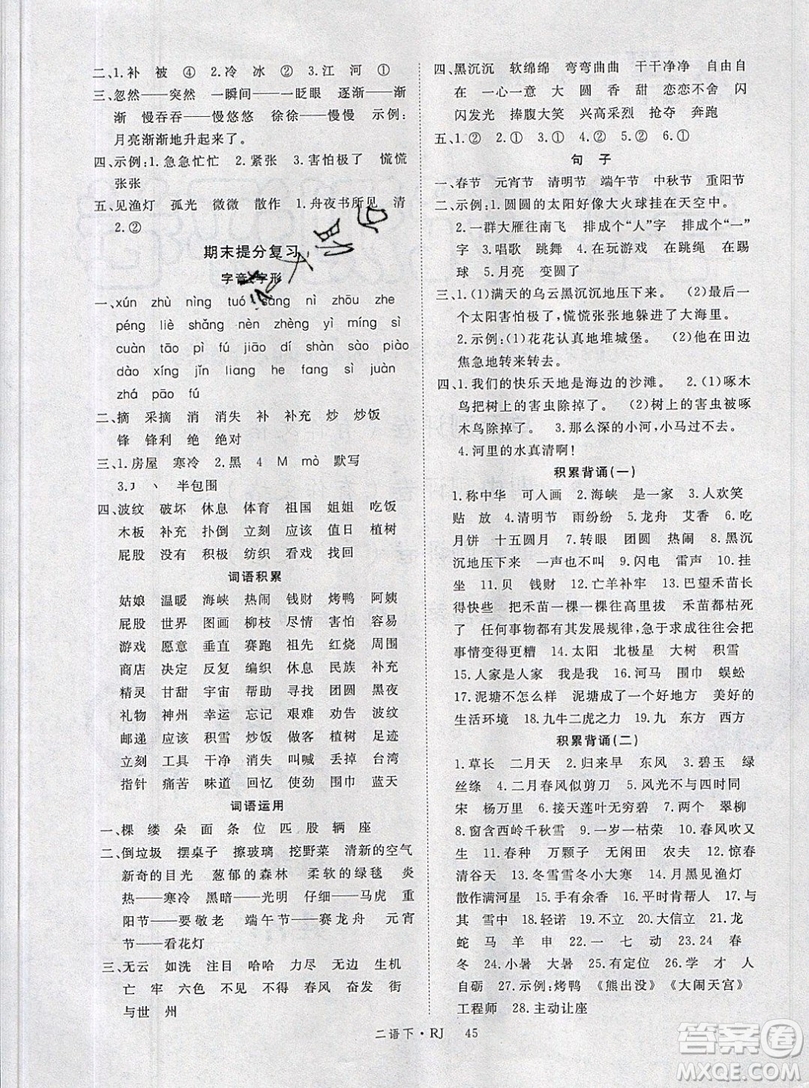 二、1.补 被 ④ 2.冷 冰 ② 3.江 河 ①
三、忽然——突然 一瞬间——一眨眼 逐渐——渐
渐 慢吞吞——慢悠悠 徐徐——慢慢 示例:
月亮渐渐地升起来了。
四、示例:1.急急忙忙 2.紧张 3.害怕极了 慌慌
张张
五、见渔灯 孤光 微微 散作 1.舟夜书所见 清
2.②
期末提分复习
字音字形
一、xún zhù nìng tuó sǎng nì zhōu zhe
péng liè shǎng nèn zhèng yì míng sì
cuàn tǎn pào chāo tǎng háng sì dīng
dào xíng jīn liang heng xiǎng fú juàn
zhá pāo fú
二、摘 采摘 消 消失 补 补充 炒 炒饭
锋 锋利 绝 绝对
三、1.房屋 寒冷 2.黑 4 M mò 默写
3.丿 丶 半包围
四、波纹 破坏 休息 体育 祖国 姐姐 吃饭
木板 补充 扑倒 立刻 应该 值日 植树
屁股 没有 积极 纺织 看戏 找回
词语积累
姑娘 温暖 海峡 热闹 钱财 烤鸭 阿姨
屁股 世界 图画 柳枝 尽情 害怕 容易
游戏 愿意 垂直 赛跑 祖先 红烧 周围
商店 决定 反复 编织 休息 民族 补充
精灵 甘甜 宇宙 寻找 团圆 黑夜
礼物 神州 幸运 忘记 艰难 劝告 波纹
邮递 应该 积雪 甜菜 做客 植树 足迹
立刻 工具 温柔 消失 叫喊 丢掉 台湾
指针 痛苦 味道 回忆 仿佛 围巾 蓝天
词语运用
一、棵 缕 朵 面 条 位 匹 股 辆 座
二、倒垃圾 摆桌子 擦玻璃 挖野菜 清新的空气
新奇的目光 葱郁的森林 柔软的绿毯 炎
热——寒冷 黑暗——光明 仔细——马虎 重
阳节——要敬老 端午节——赛龙舟 元宵
节——看花灯
三、无云 如洗 注目 哈哈 力尽 无边 生机
亡 牢 六色 不见 不变 长短 成长
与世 州
四、黑沉沉 软绵绵 弯弯曲曲 干干净净 自由自
在 一心一意 大 圆 香 甜 恋恋不舍 闪
闪发光 捧腹大笑 兴高采烈 抢夺 奔跑
五、1.① 2.② 3.② 4.② 5.① 6.①
句 子
一、春节 元宵节 清明节 端午节 中秋节 重阳节
二、示例:1.圆圆的太阳好像大火球挂在天空中。
2.一群大雁往南飞 排成个“人”字 排成个“一”
字 3.唱歌 跳舞 4.在玩游戏 在跳绳 在踢
球 5.大海 变圆了
三、1.(1)满天的乌云黑沉沉地压下来。 (2)一个
太阳害怕极了,慌慌张张地躲进了大海里。
2.示例:(1)花花认真地堆城堡。 (2)他在田边
焦急地转来转去。
四、1.我们的快乐天地是海边的沙滩。 2.(1)啄木
鸟把树上的害虫除掉了。 (2)树上的害虫被啄
木鸟除掉了。 3.那么深的小河,小马过不来。
4.河里的水真清啊!
积累背诵(一)
1.称中华 可入画 2.海峡 是一家 3.人欢笑
贴 放 4.清明节 雨纷纷 5.龙舟 艾香 6.吃
月饼 十五圆月 7.转眼 团圆 圆圆 8.黑沉
沉地压下来 一声也不叫 9.闪电 雷声 10.挂
坐 11.贝 钱财 12.亡羊补牢 13.巴望禾苗长
得快些 把禾苗一棵一棵往高里拔 禾苗都枯死
了 任何事物都有自己的规律,急于求成往往会把
事情变得更糟 14.太阳 北极星 大树 积雪
15.人家是人家 我是我 16.河马 围巾 蜈蚣
17.泥塘不怎么样 泥塘成了一个好地方 美好的
生活环境 18.九牛二虎之力 19.九 东方 西方
积累背诵(二)
1.草长 二月天 2.归来早 东风 3.碧玉 绿
丝绦 4.二月春风似剪刀 5.风光不与四时同
宋 杨万里 6.接天莲叶无穷碧 7.两个 翠柳
8.窗含西岭千秋雪 9.一岁一枯荣 10.春风吹又
生 春 11.万颗子 无闲田 农夫 12.惊春
清谷天 夏满芒夏暑相连 13.月黑见渔灯
散作满河星 14.予人玫瑰 15.平时肯帮人 与
其 雪中 17.轻诺 20.大信立 21.龙
蛇 马 羊 22. 23. 24. 春
冬 25.小暑 大暑 26.己 学 才 明星
自砺 27.示例:烤鸭 《熊出没》 《大闹天宫》
工程师 28.主动让座
二语下·RJ 45
答案圈
MXQE.COM